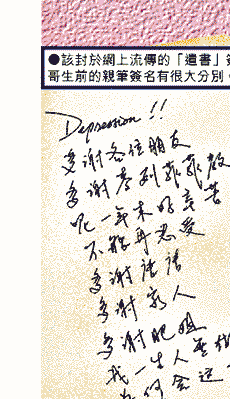 ●該封於網上流傳的「遺書」
哥生前的親筆簽名有很大分別
Depression!!
多謝各位朋友
多謝麥列菲菲教
呢一年來好辛苦
不能再忍受
多謝唐唐
多謝家人
多謝肥姐
我一生人無
為何會這